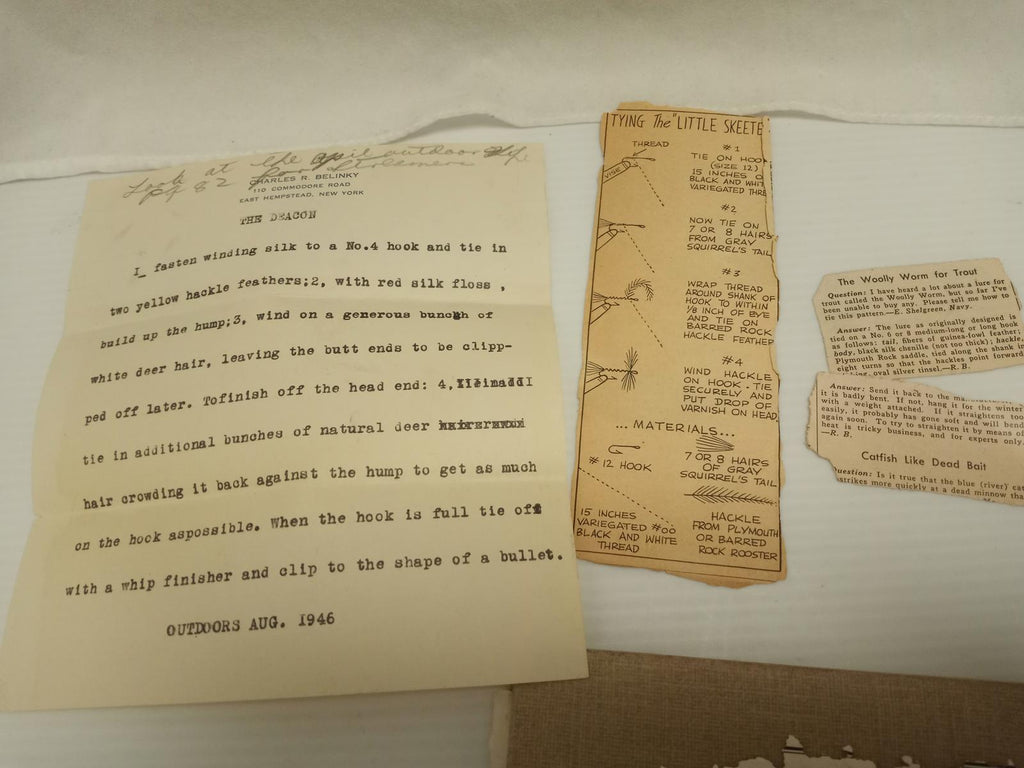 Look at the april outdoor life
pg 82 for Streamers
CHARLES R. BELINKY
110 COMMODORE ROAD
EAST HEMPSTEAD, NEW YORK
THE DEACON
I fasten winding silk to a No.4 hook and tie in
two yellow hackle feathers;2, with red silk floss ,
build up the hump;3, wind on a generous bunch of
white deer hair, leaving the butt ends to be clipp-
ped off later. Tofinish off the head end: 4,
tie in additional bunches of natural deer
hair crowding it back against the hump to get as much
on the hook aspossible. When the hook is full tie off
with a whip finisher and clip to the shape of a bullet.
OUTDOORS AUG. 1946
TYING The "LITTLE SKEETE
THREAD
VISE
#1
TIE ON HOOK
(SIZE 12)
15 INCHES O
BLACK AND WHIT
VARIEGATED THRE
#2
NOW TIE ON
7 OR 8 HAIRS
FROM GRAY
SQUIRREL'S TAIL
#3
WRAP THREAD
AROUND SHANK OF
HOOK TO WITHIN
1/8 INCH OF EYE
AND TIE ON
BARRED ROCK
HACKLE FEATHER
#4
WIND HACKLE
ON HOOK. TIE
SECURELY AND
PUT DROP OF
VARNISH ON HEAD
...MATERIALS...
#12 HOOK
7 OR 8 HAIRS
OF GRAY
SQUIRREL'S TAIL
15 INCHES
VARIEGATED #00
BLACK AND WHITE
THREAD
HACKLE
FROM PLYMOUTH
OR BARRED
ROCK ROOSTER
The Woolly Worm for Trout
Question: I have heard a lot about a lure for
trout called the Woolly Worm, but so far I've
been unable to buy any. Please tell me how to
tie this pattern.—E. Shelgreen, Navy.
Answer: The lure as originally designed is
tied on a No. 6 or 8 medium-long or long hook
as follows: tail, fibers of guinea-fowl feather;
body, black silk chenille (not too thick); hackle,
Plymouth Rock saddle, tied along the shank in
eight turns so that the hackles point forward
oval silver tinsel.—R. B.
Answer: Send it back to the
it is badly bent. If not, hang it for the winter
with a weight attached. If it straightens too
easily, it probably has gone soft and will bend
again soon. To try to straighten it by means of
heat is tricky business, and for experts only.
—R. B.
Catfish Like Dead Bait
uestion: Is it true that the blue (river) cat
strikes more quickly at a dead minnow tha